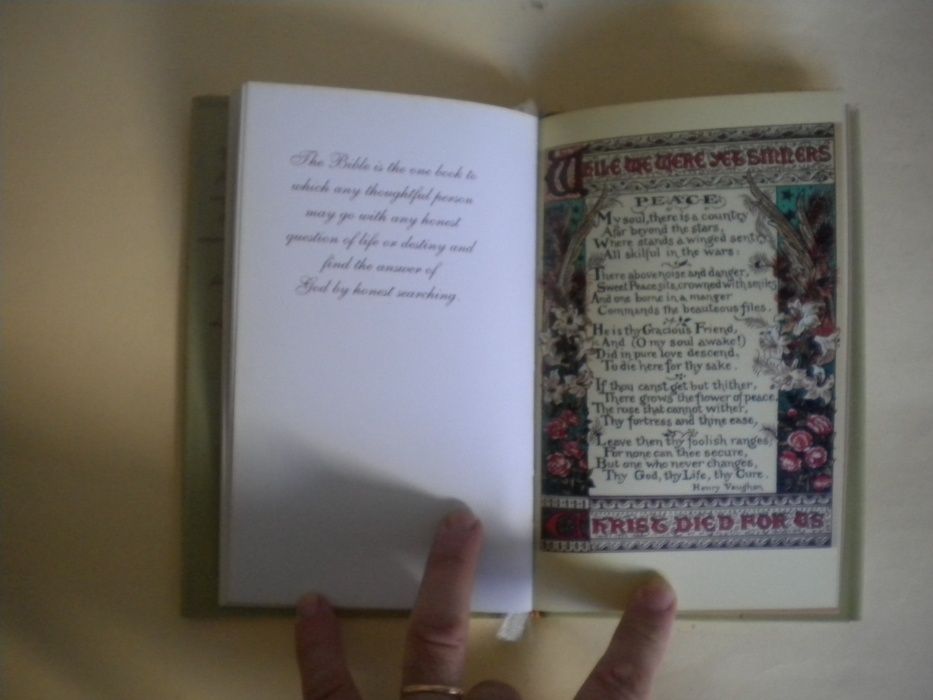 The Bible is the one book to
which any thoughtful person
may go with any honest
question of life or destiny and
find the answer of
God by honest searching.
WHILE WE WERE YET SINNERS
PEACE
My soul, there is a country
Afar beyond the stars,
Where stands a winged sentry
All skilful in the wars:
There above noise and danger,
Sweet Peace sits, crowned with smiles
And one borne in a manger
Commands the beauteous files.
He is thy Gracious Friend,
And (O my soul awake!)
Did in pure love descend,
To die here for thy sake.
If thou canst get but thither,
There grows the flower of peace,
The rose that cannot wither,
Thy fortress and thine ease,
Leave then thy foolish ranges;
For none can thee secure,
But one who never changes,
Thy God, thy Life, thy Cure.
Henry Vaughan
CHRIST DIED FOR US